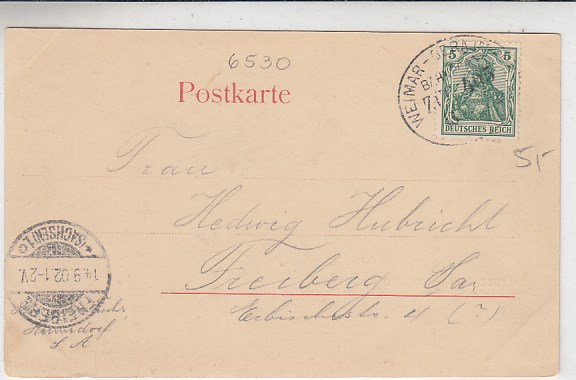 6530
Postkarte
WEIMAR - GERA
BAHN
5 5
DEUTSCHES REICH
5,-
Frau
Hedwig Hubricht
Freiberg Sa.
Erbischestr. 4 (?)
FREIBERG
14.9.02.1-2V.
(SACHSEN)
Hermsdorf
S. A.